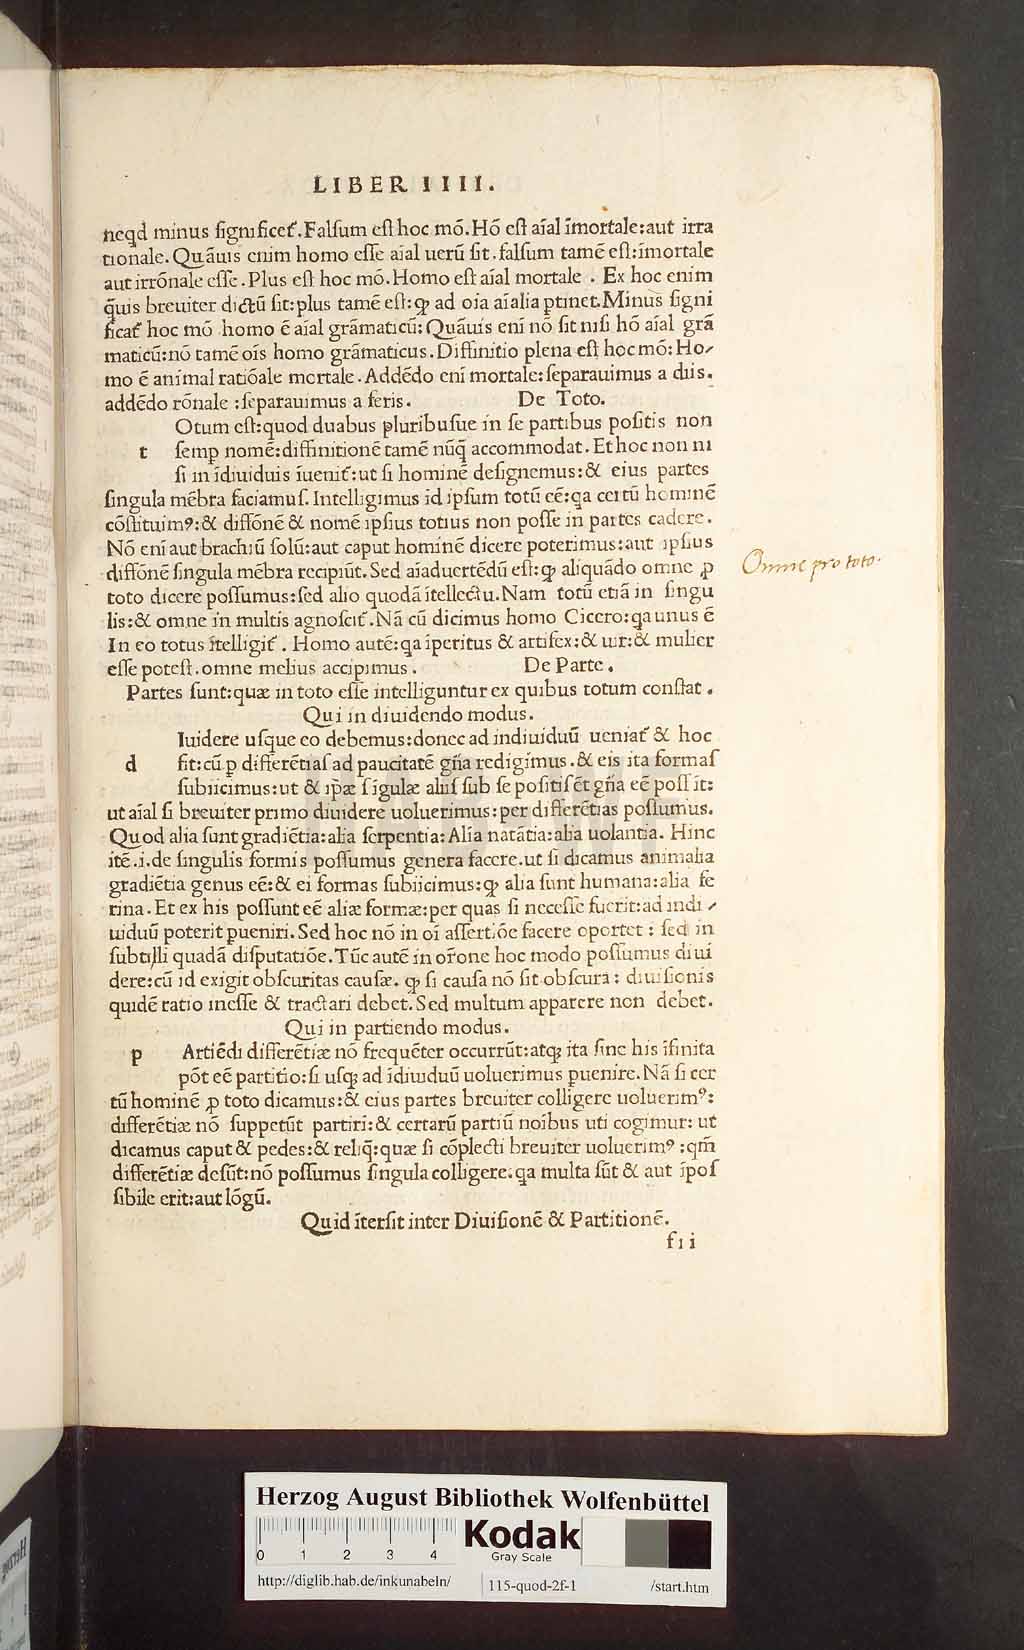 LIBER IIII.
neqd minus ſignificet᷑. Falſum eſt hoc mō. Hō eſt aīal īmortale: aut irra
tionale. Quāuis enim homo eſſe aīal uerū ſit. falſum tamē eſt: īmortale
aut irrōnale eſſe. Plus eſt hoc mō. Homo eſt aīal mortale . Ex hoc enim
q̄uis breuiter dictū ſit: plus tamē eſt: ꝙ ad oīa aīalia ꝑtinet. Minus ſigni
ficat᷑ hoc mō homo ē aīal grāmaticū: Quāuis enī nō ſit niſi hō aīal grā
maticū: nō tamē oīs homo grāmaticus. Diffinitio plena eſt hoc mō: Ho-
mo ē animal ratiōale mortale. Addēdo enī mortale: ſeparauimus a diis.
addēdo rōnale : ſeparauimus a feris. De Toto.
Otum eſt: quod duabus pluribuſue in ſe partibus poſitis non
t ſemꝑ nomē: diffinitionē tamē nūq̄ accommodat. Et hoc non ni
ſi in īdiuiduis īuenit᷑: ut ſi hominē deſignemus: & eius partes
ſingula mēbra faciamuſ. Intelligimus id ipſum totū eē: qa certū hominē
cōſtituimꝰ: & diffōnē & nomē ipſius totius non poſſe in partes cadere.
Nō enī aut brachiū ſolū: aut caput hominē dicere poterimus: aut ipſius
diffōnē ſingula mēbra recipiūt. Sed aīaduertēdū eſt: ꝙ aliquādo omne ꝓ
toto dicere poſſumus: ſed alio quodā ītellectu. Nam totū etiā in ſingu
lis: & omne in multis agnoſcit᷑. Nā cū dicimus homo Cicero: qa unus ē
In eo totus ītelligit᷑ . Homo autē: qa īperitus & artifex: & uir: & mulier
eſſe poteſt. omne melius accipimus . De Parte .
Omne pro toto.
Partes ſunt: quæ in toto eſſe intelliguntur ex quibus totum conſtat .
Qui in diuidendo modus.
Iuidere uſque eo debemus: donec ad indiuiduū ueniat᷑ & hoc
d fit: cū ꝑ differētiaſ ad paucitatē gn̄a redigimus. & eis ita formaſ
ſubiicimus: ut & ip̄æ ſīgulæ aliiſ ſub ſe poſitiſ ēt gn̄a eē poſſīt:
ut aīal ſi breuiter primo diuidere uoluerimus: per differētias poſſumus.
Quod alia ſunt gradiētia: alia ſerpentia: Alia natātia: alia uolantia. Hinc
itē .i. de ſingulis formis poſſumus genera facere. ut ſi dicamus animalia
gradiētia genus eē: & ei formas ſubiicimus: ꝙ alia ſunt humana: alia fe
rina. Et ex his poſſunt eē aliæ formæ: per quas ſi neceſſe fuerit: ad indi-
uiduū poterit ꝑueniri. Sed hoc nō in oī aſſertiōe facere oportet : ſed in
ſubtilli quadā diſputatiōe. Tūc autē in or̄one hoc modo poſſumus diui
dere: cū id exigit obſcuritas cauſæ. ꝙ ſi cauſa nō ſit obſcura: diuiſionis
quidē ratio ineſſe & tractari debet. Sed multum apparere non debet.
Qui in partiendo modus.
p Artiēdi differētiæ nō frequēter occurrūt: atqꝫ ita ſine his īfinita
pōt eē partitio: ſi uſqꝫ ad īdiuiduū uoluerimus ꝑuenire. Nā ſi cer
tū hominē ꝓ toto dicamus: & eius partes breuiter colligere uoluerimꝰ:
differētiæ nō ſuppetūt partiri: & certarū partiū noībus uti cogimur: ut
dicamus caput & pedes: & reliq̄: quæ ſi cōplecti breuiter uoluerimꝰ : qm̄
differētiæ deſūt: nō poſſumus ſingula colligere. qa multa ſūt & aut īpoſ
ſibile erit: aut lōgū.
Quid īterſit inter Diuiſionē & Partitionē.
fii
HAB WF
Herzog August Bibliothek Wolfenbüttel
0 1 2 3 4
Kodak
Gray Scale
http://diglib.hab.de/inkunabeln/ 115-quod-2f-1 /start.htm